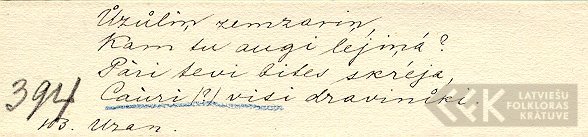 Ůzůliņ zemzariņ,
Kam tu audzi lejiņā?
Pāri tevi bites skrēja,
394 Cauri (?) visi draviniki.
103. Uzan.
LATVIEŠU
FOLKLORAS
KRĀTUVE